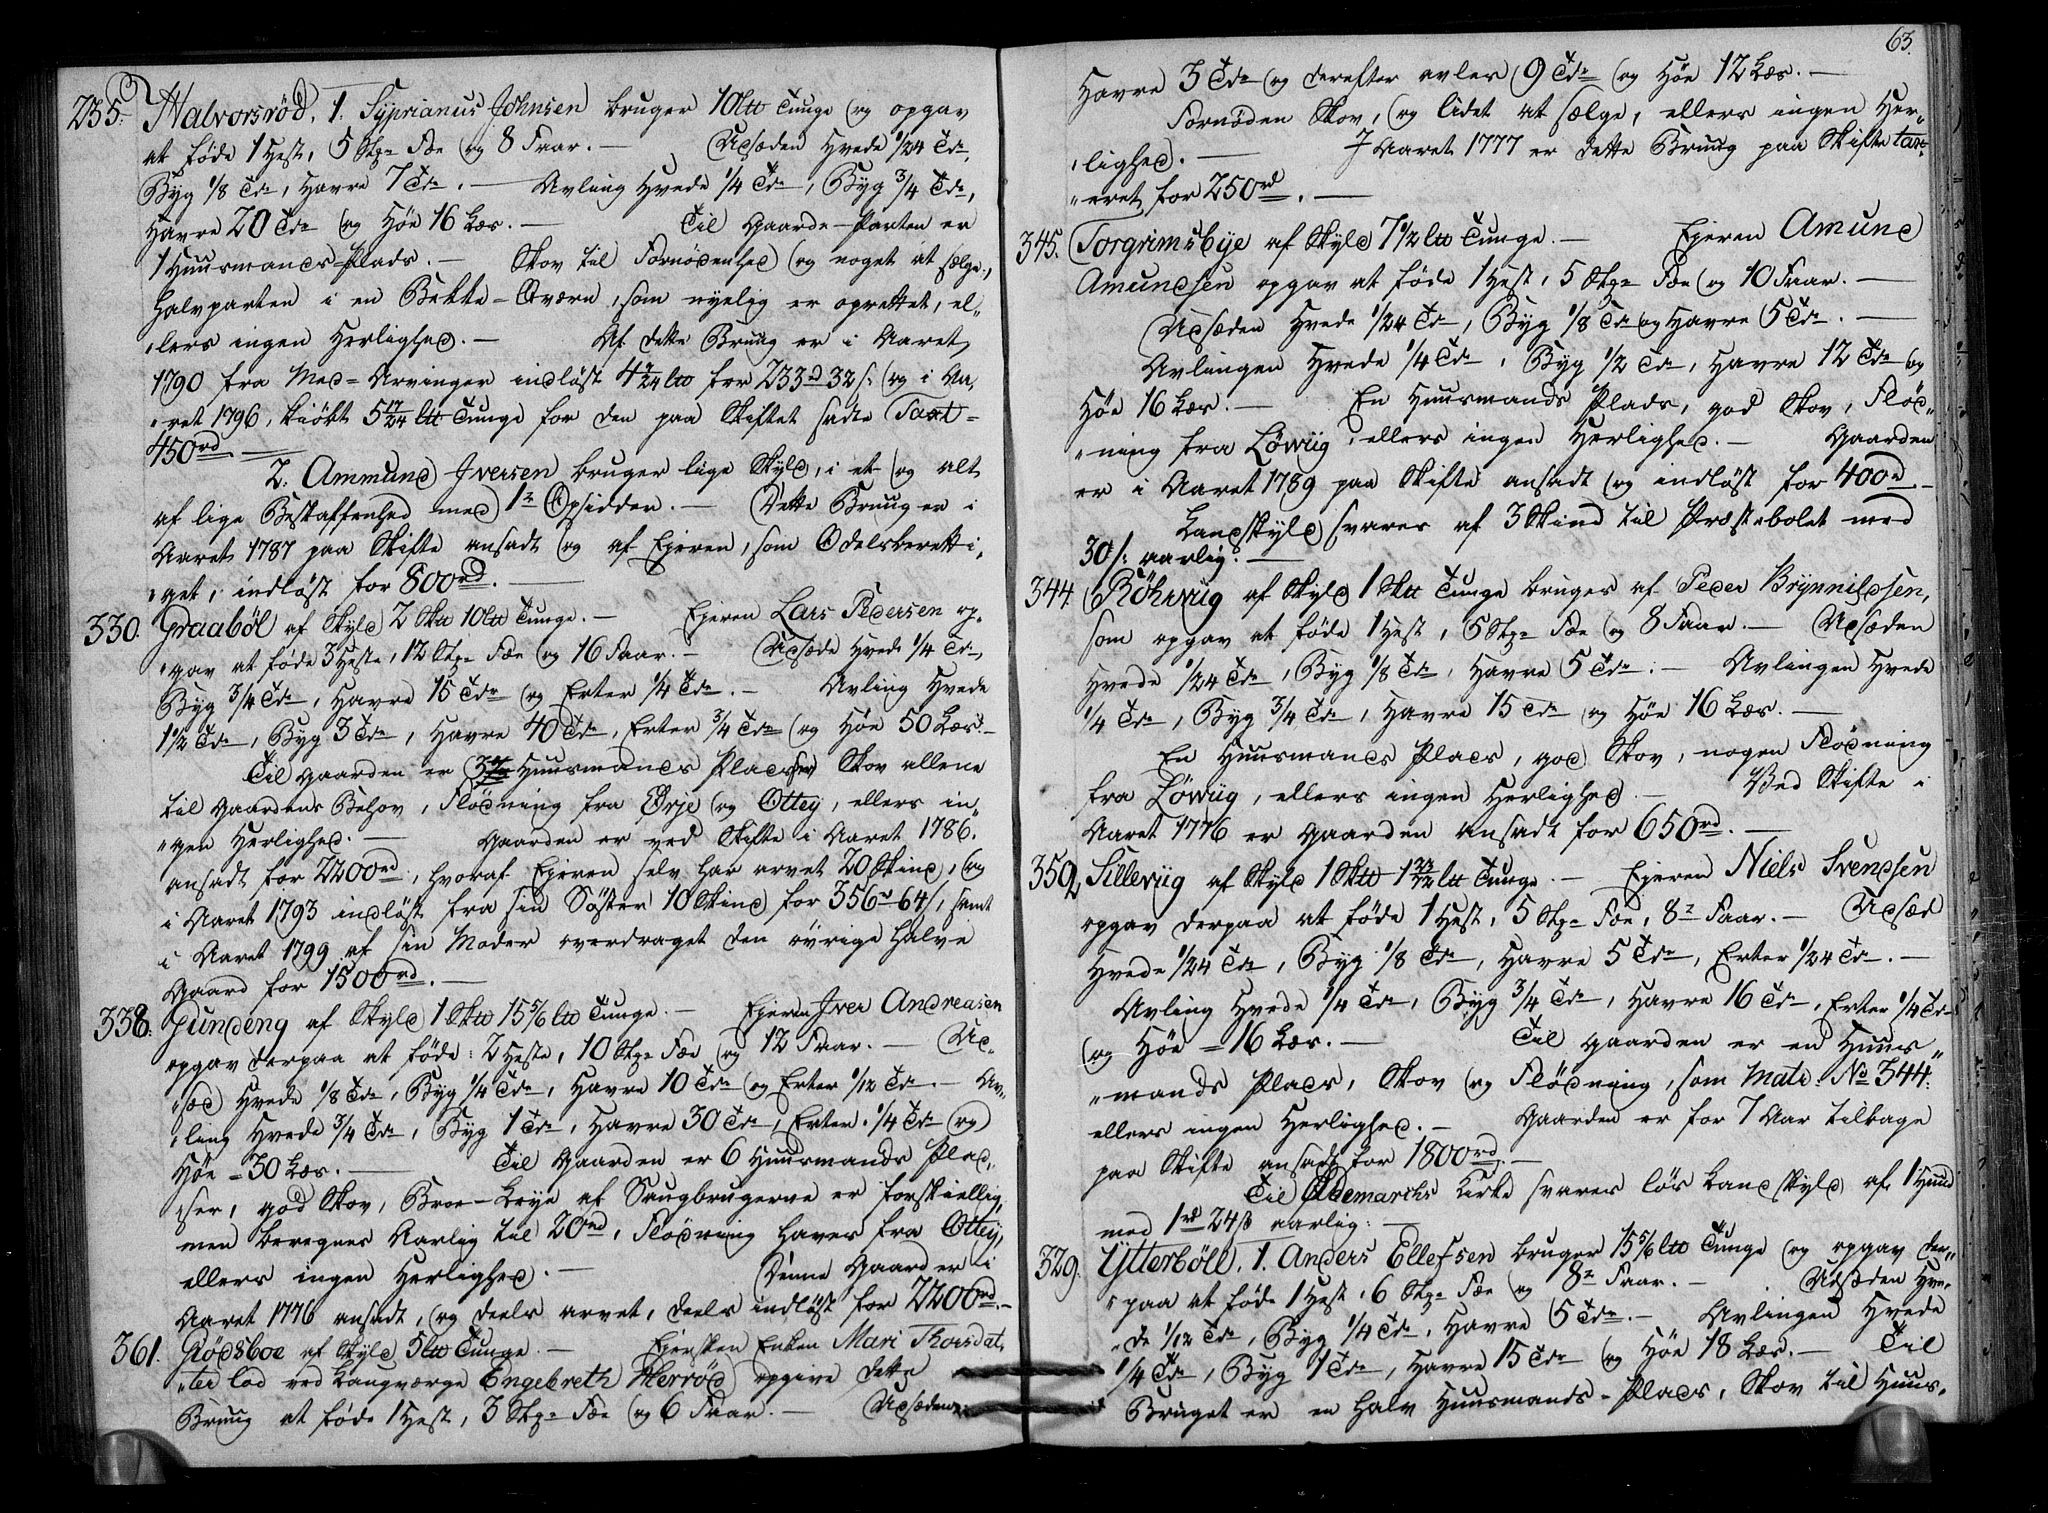 235. Halvorsröd, 1. Syprianus Johnsen bruger 10 ltt Tunge og opgav
at föde 1 Hest, 5 Stgr Fæ og 8 Faar. — Udsæden Hvede 1/24 Tde,
Byg 1/8 Tde, Havre 7 Tde. — Avling Hvede 1/4 Tde, Byg 3/4 Tde,
Havre 20 Tde og Höe 16 Læs. — Til Gaarde-Parten er
1 Huusmands-Plads. — Skov til Fornödenhed og noget at sælge,
Halvparten i en Bekke-Qværn, som nyelig er oprettet, el-
lers ingen Herlighed. — Af dette Bruug er i Aaret
1790 fra Med-Arvinger indlöst 4 7/24 ltt for 233 rd 32 s. og i Aa-
ret 1796, kiöbt 5 17/24 ltt Tunge for den paa Skiftet satte Taxt =
450 rd. —
2. Ammund Iversen bruger lige Skyld, i et og alt
af lige Beskaffenhed med 1r Opsidder. — Dette Bruug er i
Aaret 1787 paa Skifte ansadt og af Ejeren, som Odelsberetti-
get, indlöst for 800 rd. —
330. Graaböl af Skyld 2 Sktt 10 ltt Tunge. — Ejeren Lars Pedersen op-
gav at föde 3 Heste, 12 Stgr Fæ og 16 Faar. — Udsæde Hvede 1/4 Tde,
Byg 3/4 Tde, Havre 15 Tdr og Erter 1/4 Tde. — Avling Hvede
1 1/2 Tde, Byg 3 Tdr, Havre 40 Tde, Erter 3/4 Tde og Höe 50 Læs. —
Til Gaarden er 3de Huusmands Pladser, Skov allene
til Gaardens Behov, Flödning fra Örje og Ottey, ellers in-
gen Herlighed. — Gaarden er ved Skifte i Aaret 1786
ansadt for 2200 rd, hvoraf Ejeren selv har arvet 20 Skind, og
i Aaret 1793 indlöst fra sin Söster 10 Skind for 356 rd 64 s, samt
i Aaret 1799 af sin Moder overdraget den övrige halve
Gaard for 1500 rd. —
338. Gundeng af Skyld 1 Sktt 15 5/6 ltt Tunge. — Ejeren Iver Andreasen
opgav derpaa at föde: 2 Heste, 10 Stgr Fæ og 12 Faar. — Ud-
sæd Hvede 1/8 Tde, Byg 1/4 Tde, Havre 10 Tde og Erter 1/12 Tde. — Av-
ling Hvede 3/4 Tde, Byg 1 Tde, Havre 30 Tde, Erter 1/4 Tde og
Höe = 30 Læs. — Til Gaarden er 6 Huusmands Plad-
ser, god Skov, Broe-Leye af Saugbrugerne er forskiellig,
men beregnes Aarlig til 20 rd, Flödning haves fra Ottey,
ellers ingen Herlighed. — Denne Gaard er i
Aaret 1776 ansadt, og deels arvet, deels indlöst for 2200 rd. —
361. Rödsboe af Skyld 5 ltt Tunge. — Ejersken Enken Mari Thorsdat-
ter lod ved Laugværge Engebreth Herröd opgive dette
Bruug at föde 1 Hest, 3 Stgr Fæ og 6 Faar. — Udsæden
63.
Havre 3 Tde og derefter avler 9 Tde og Höe 12 Læs. —
Fornöden Skov, og lidet at sælge, ellers ingen Her-
lighed. — I Aaret 1777 er dette Bruug paa Skifte tax-
eret for 250 rd. —
345. Torgrimsbye af Skyld 7 1/2 ltt Tunge. — Ejeren Amund
Amundsen opgav at föde 1 Hest, 5 Stgr Fæ og 10 Faar. —
Udsæden Hvede 1/24 Tde, Byg 1/8 Tde og Havre 5 Tde. —
Avlingen Hvede 1/4 Tde, Byg 1/2 Tde, Havre 12 Tde og
Höe 16 Læs. — En Huusmands Plads, god Skov, Flöd-
ning fra Löwiig, ellers ingen Herlighed. — Gaarden
er i Aaret 1789 paa Skifte ansadt og indlöst for 400 rd. —
Landskyld svares af 3 Skind til Præstebolet med
30 s. aarlig. —
344. Röhrviig af Skyld 1 Sktt Tunge bruges af Peder Brynnildsen,
som opgav at föde 1 Hest, 5 Stgr Fæ og 8 Faar. — Udsæden
Hvede 1/24 Tde, Byg 1/8 Tde, Havre 5 Tde. — Avlingen Hvede
1/4 Tde, Byg 3/4 Tde, Havre 15 Tde og Höe 16 Læs. —
En Huusmands Plads, god Skov, nogen Flödning
fra Löwiig, ellers ingen Herlighed. — Ved Skifte i
Aaret 1776 er Gaarden ansadt for 650 rd. —
350. Silleviig af Skyld 1 Sktt 1 ltt Tunge. — Ejeren Niels Svendsen
opgav derpaa at föde 1 Hest, 5 Stgr Fæ, 8r Faar. — Udsæd
Hvede 1/24 Tde, Byg 1/8 Tde, Havre 5 Tde, Erter 1/24 Tde. —
Avling Hvede 1/4 Tde, Byg 3/4 Tde, Havre 16 Tde, Erter 1/4 Tde
og Höe = 16 Læs. — Til Gaarden er en Huus-
mands Plads, Skov og Flödning, som Matr: No 344.
ellers ingen Herlighed. — Gaarden er for 7 Aar tilbage
paa Skifte ansadt for 1800 rd. —
Til Ödemarchs Kirke svares lös Landskyld af 1 Huud
med 1 rd 24 s aarlig. —
329. Ytterböll, 1. Anders Ellefsen bruger 15 5/6 ltt Tunge og opgav der-
paa at föde 1 Hest, 6 Stgr Fæ og 8r Faar. — Udsæden Hve-
de 1/12 Tde, Byg 1/4 Tde, Havre 5 Tde. — Avlingen Hvede
1/4 Tde, Byg 1 Tde, Havre 15 Tde og Höe 18 Læs. — Til
Bruget er en halv Huusmands-Plads, Skov til Huus-